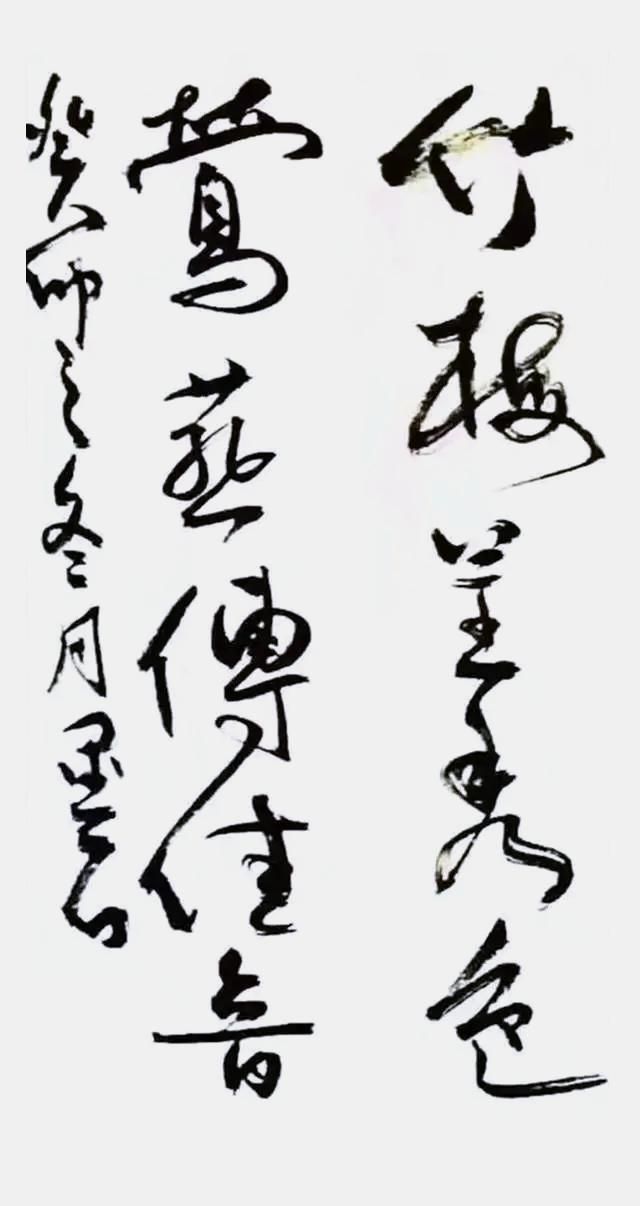 竹梅呈秀色
鶯燕傳佳音
癸卯之冬月墨